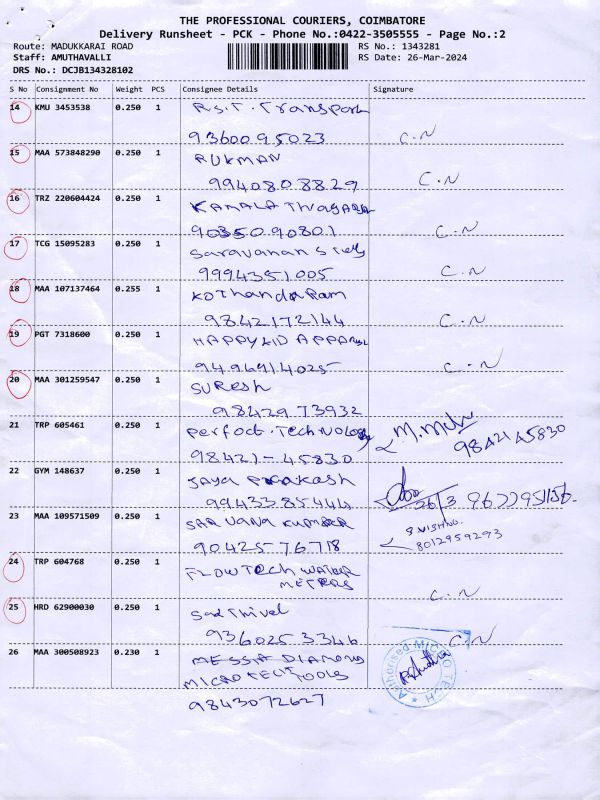 THE PROFESSIONAL COURIERS, COIMBATORE
Delivery Runsheet - PCK - Phone No.:0422-3505555 - Page No.:2
Route: MADUKKARAI ROAD RS No.: 1343281
Staff: AMUTHAVALLI RS Date: 26-Mar-2024
DRS No.: DCJB134328102
S No Consignment No Weight PCS Consignee Details Signature
14 KMU 3453538 0.250 1 R.S.T. Transport
9360095023 C.N
15 MAA 573848290 0.250 1 RUKMAN
9940808829 C.N
16 TRZ 220604424 0.250 1 KAMALA
9035090801 C.N
17 TCG 15095283 0.250 1 Saravanan
9994351005 C.N
18 MAA 107137464 0.255 1 KOThandaRam
9842172144 C.N
19 PGT 7318600 0.250 1 HAPPY KID APPAREL
9496914025 C.N
20 MAA 301259547 0.250 1 SURESH
9842973932
21 TRP 605461 0.250 1 Perfoct.Technology
98421-45830 9842145830
22 GYM 148637 0.250 1 JAYA PRakash
9943385444 26/3
23 MAA 109571509 0.250 1 SARVANA KUMBER
9042576718 8012959293
24 TRP 604768 0.250 1 FLOWTECH WATER
METERS C.N
25 HRD 62900030 0.250 1 Sakthivel
9360253346 C.N
26 MAA 300508923 0.230 1 MESSIA DIAMOND
MICROTECH TOOLS
9843072627
Authorised MICRO TECH